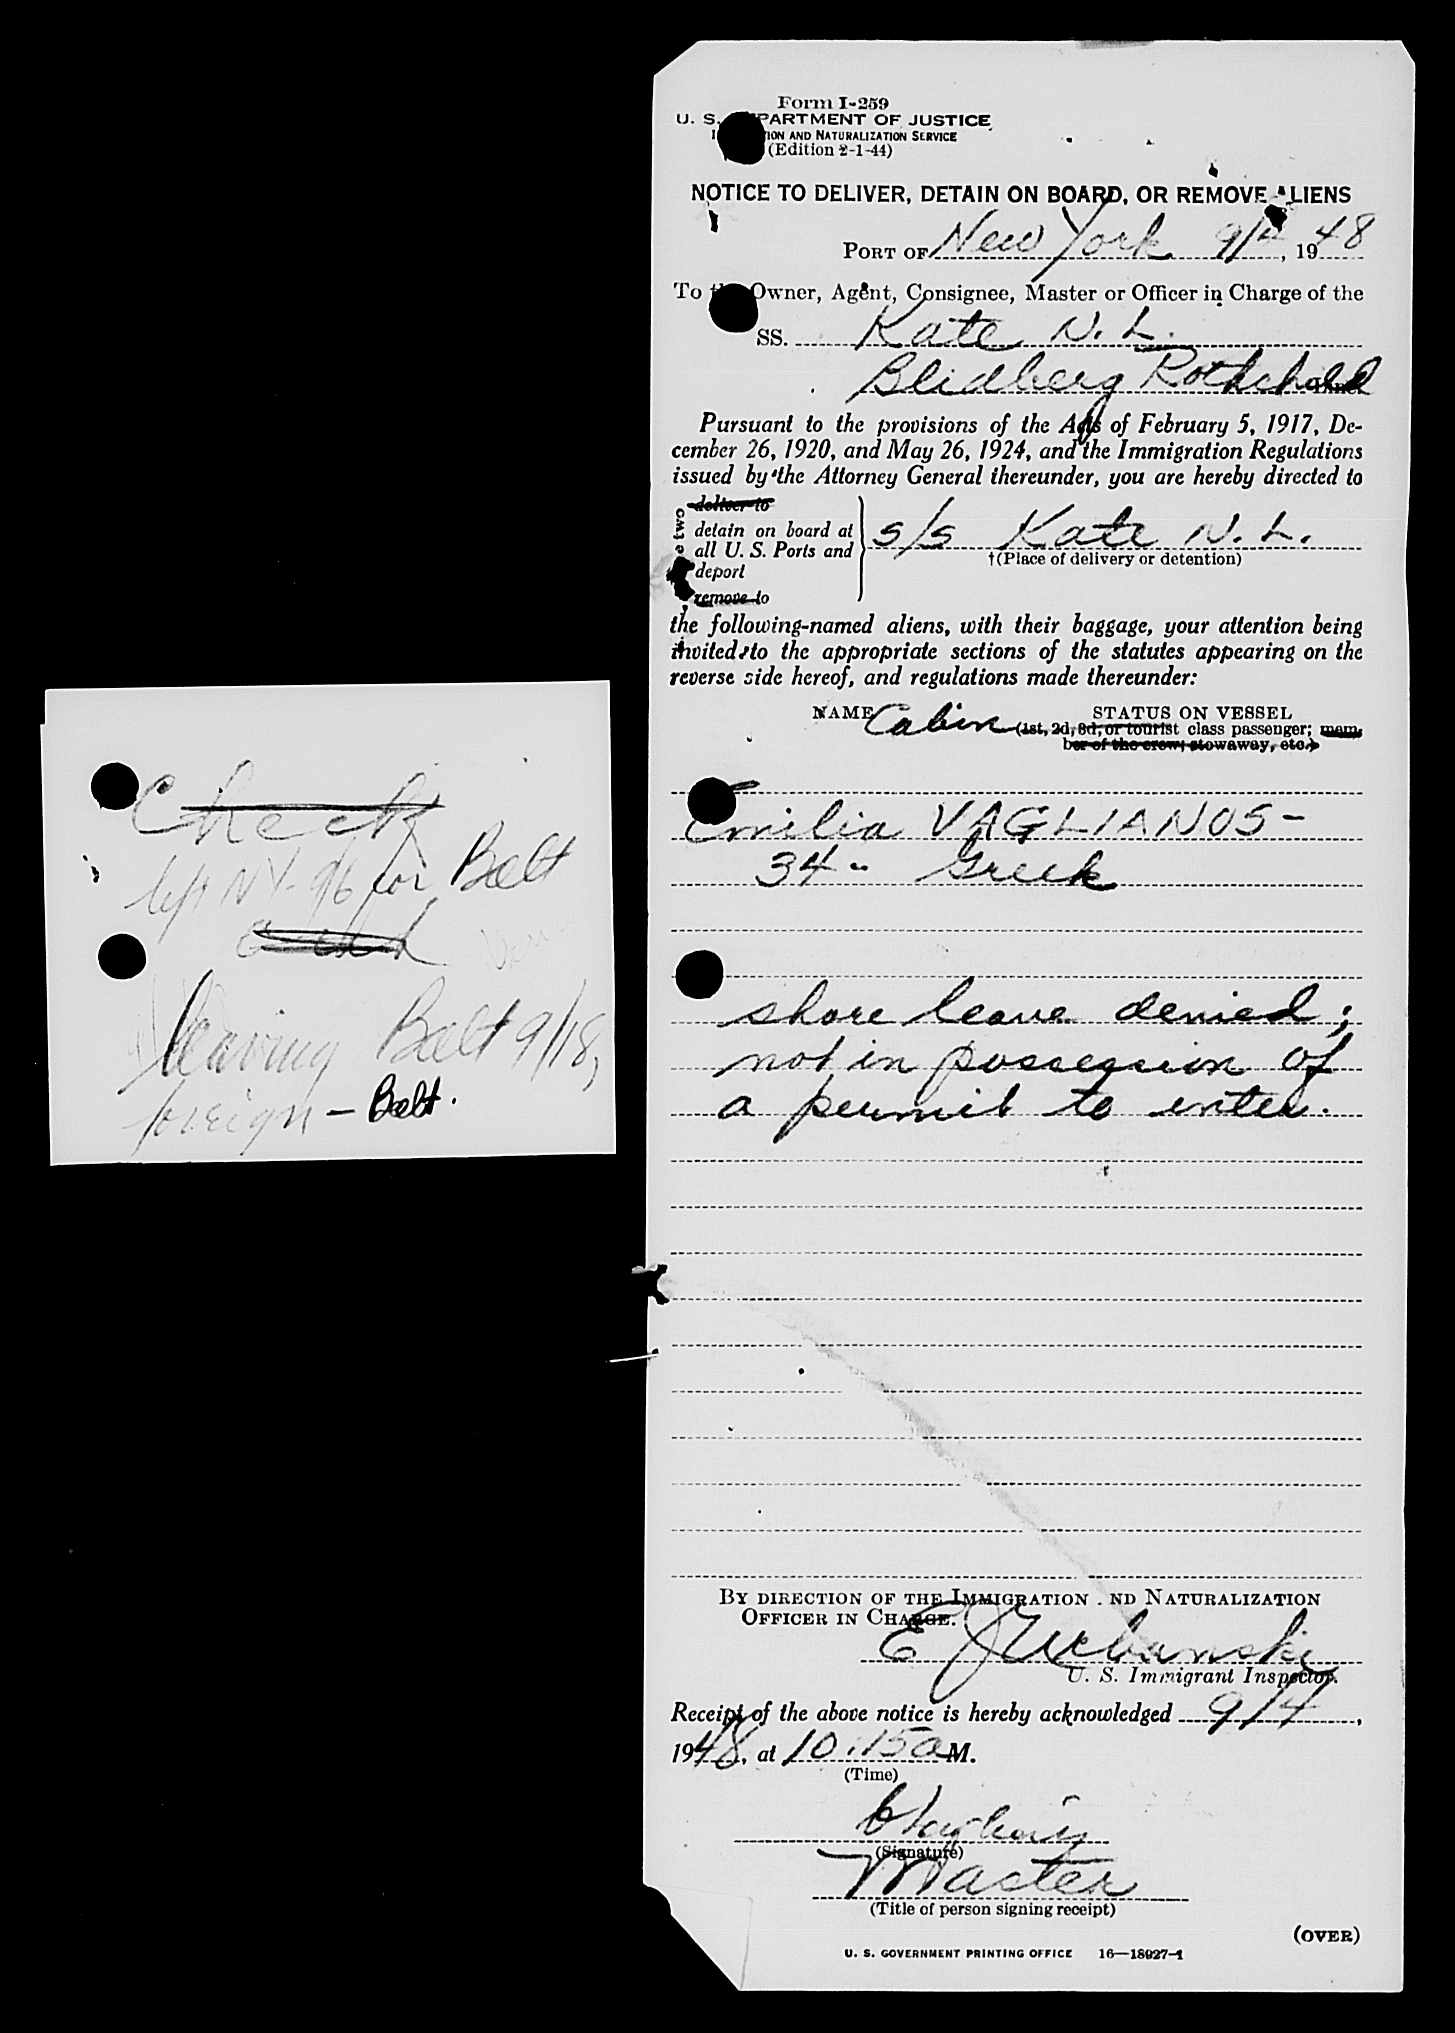 Check
left NY- 9/6 for Balt
and
leaving Balt 9/18,
foreign - Balt.
Form I-259
U. S. DEPARTMENT OF JUSTICE
IMMIGRATION AND NATURALIZATION SERVICE
(Edition 2-1-44)
NOTICE TO DELIVER, DETAIN ON BOARD, OR REMOVE ALIENS
PORT OF New York 9/4, 1948
To the Owner, Agent, Consignee, Master or Officer in Charge of the
SS. Kate N. L.
Blidberg Rothchild Line
Pursuant to the provisions of the Acts of February 5, 1917, De-
cember 26, 1920, and May 26, 1924, and the Immigration Regulations
issued by the Attorney General thereunder, you are hereby directed to
deliver to
detain on board at
all U. S. Ports and
deport
remove to
s/s Kate N. L.
†(Place of delivery or detention)
the following-named aliens, with their baggage, your attention being
invited to the appropriate sections of the statutes appearing on the
reverse side hereof, and regulations made thereunder:
NAME Cabin STATUS ON VESSEL
(1st, 2d, 3d, or tourist class passenger; mem-
ber of the crew; stowaway, etc.)
Emilia VAGLIANOS-
34- Greek
shore leave denied;
not in possession of
a permit to enter.
BY DIRECTION OF THE IMMIGRATION AND NATURALIZATION
OFFICER IN CHARGE.
E J Urbanski
U. S. Immigrant Inspector.
Receipt of the above notice is hereby acknowledged 9/4,
1948, at 10:15a M.
(Time)
(Signature)
Master
(Title of person signing receipt)
(OVER)
U. S. GOVERNMENT PRINTING OFFICE 16—18927-1